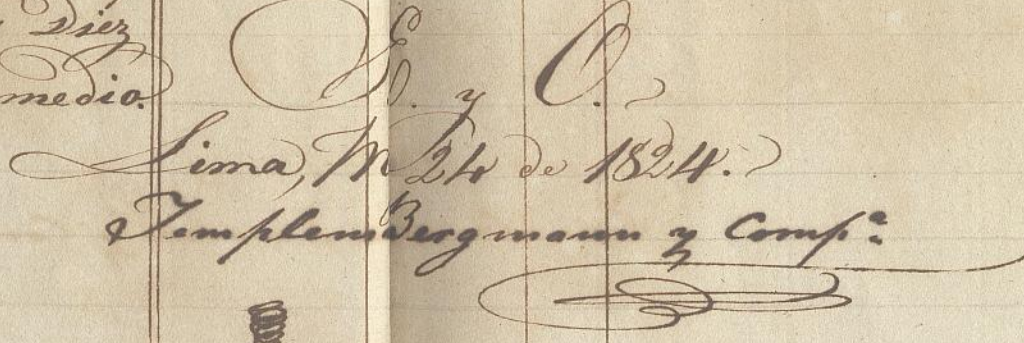 Diez
medio.
E. y O.
Lima, M 24 de 1824.
Templeman Bergmann y Compª